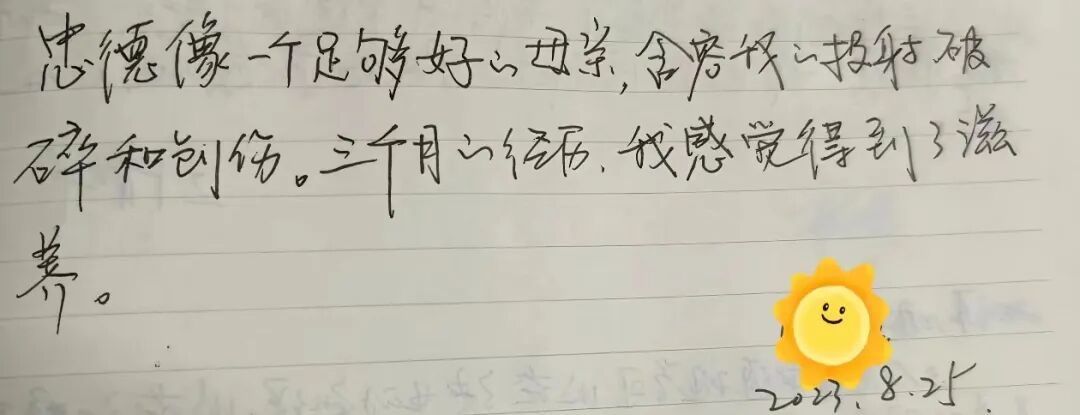 忠德像一个足够好的母亲,含容我的投射破
碎和创伤。三个月的经历,我感觉得到了滋
养。
2023.8.25